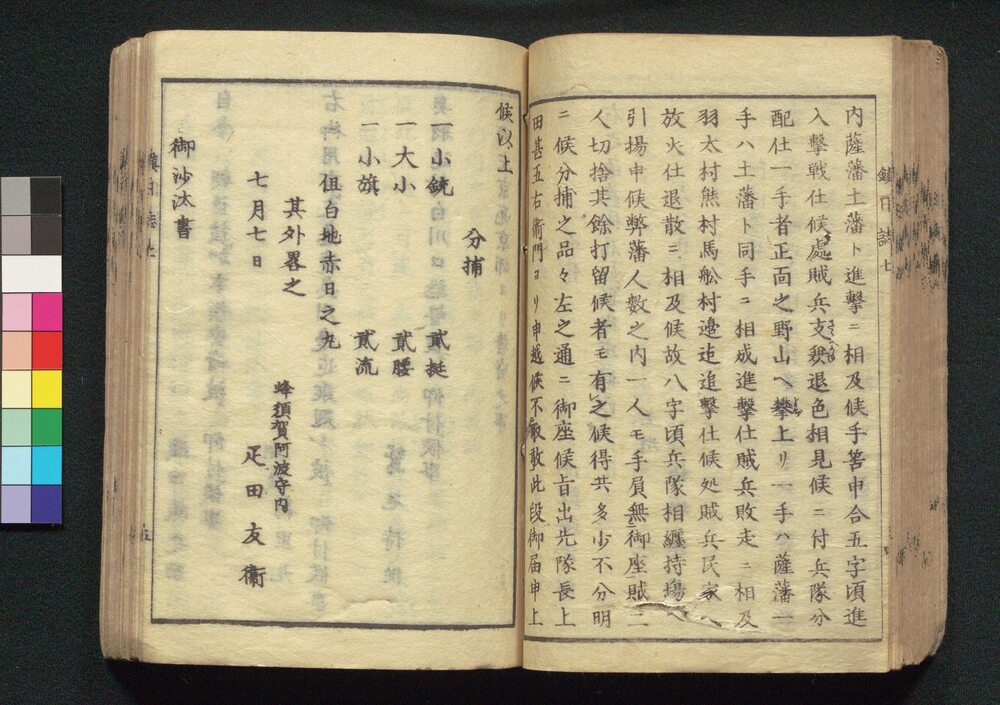 内薩藩土藩ト進撃ニ相及候手筈申合五字頃進
入撃戦仕候處賊兵支兼退色相見候ニ付兵隊分
配仕一手者正面之野山ヘ攀上リ一手ハ薩藩一
手ハ土藩ト同手ニ相成進撃仕賊兵敗走ニ相及
羽太村熊村馬舩村邊迠追撃仕候処賊兵民家ヘ
放火仕退散ニ相及候故八字頃兵隊相纏持場ヘ
引揚申候弊藩人數之内一人モ手負無御座賊二
人切捨其餘打留候者モ有之候得共多少不分明
ニ候分捕之品々左之通ニ御座候旨出先隊長上
田甚五右衛門ヨリ申越候不取敢此段御届申上
候以上
分捕
一小銃 貳挺
一大小 貳腰
一小旗 貳流
但白地赤日之丸
其外畧之
蜂須賀阿波守内
七月七日 疋田友衞
御沙汰書
鎮日誌七